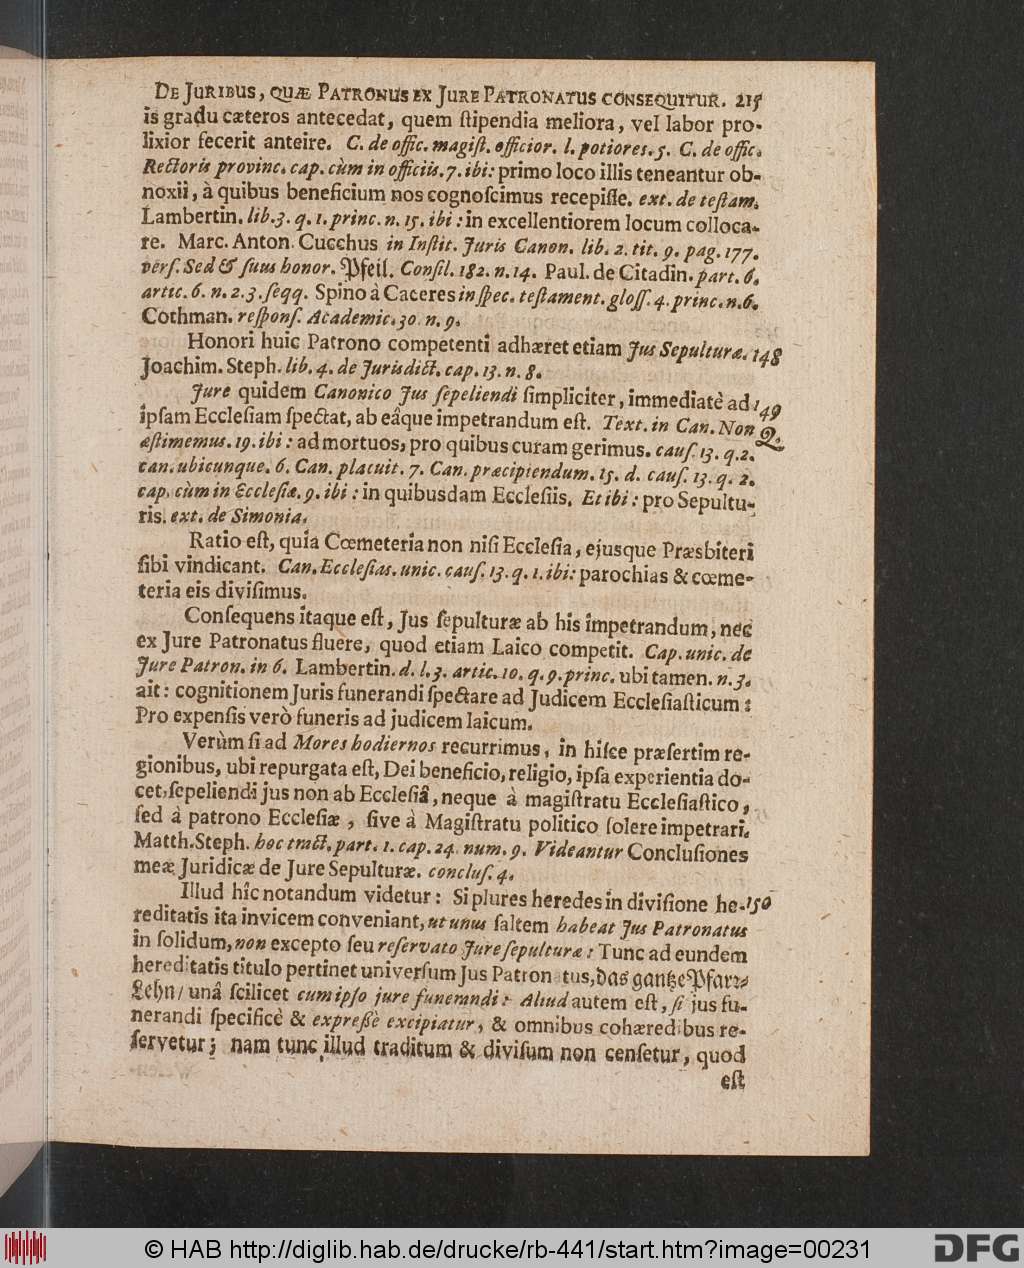 DE JURIBUS, QUÆ PATRONUS EX JURE PATRONATUS CONSEQUITUR. 215
is gradu cæteros antecedat, quem ſtipendia meliora, vel labor pro-
lixior fecerit anteire. C. de offic. magiſt. officior. l. potiores. 5. C. de offic.
Rectoris provinc. cap. cùm in officiis. 7. ibi: primo loco illis teneantur ob-
noxii, à quibus beneficium nos cognoſcimus recepiſſe. ext. de teſtam.
Lambertin. lib. 3. q. 1. princ. n. 15. ibi: in excellentiorem locum colloca-
re. Marc. Anton. Cucchus in Inſtit. Juris Canon. lib. 2. tit. 9. pag. 177.
verſ. Sed & ſuus honor. Pfeil. Conſil. 182. n. 14. Paul. de Citadin. part. 6.
artic. 6. n. 2. 3. ſeqq. Spino à Caceres in ſpec. teſtament. gloſſ. 4. princ. n. 6.
Cothman. reſponſ. Academic. 30. n. 9.
Honori huic Patrono competenti adhæret etiam Jus Sepulturæ. 148
Joachim. Steph. lib. 4. de Jurisdict. cap. 13. n. 8.
Jure quidem Canonico Jus ſepeliendi ſimpliciter, immediatè ad 149
ipſam Eccleſiam ſpectat, ab eâque impetrandum eſt. Text. in Can. Non Q.
æſtimemus. 19. ibi: ad mortuos, pro quibus curam gerimus. cauſ. 13. q. 2.
can. ubicunque. 6. Can. placuit. 7. Can. præcipiendum. 15. d. cauſ. 13. q. 2.
cap. cùm in Eccleſiæ. 9. ibi: in quibusdam Eccleſiis. Et ibi: pro Sepultu-
ris. ext. de Simonia.
Ratio eſt, quia Cœmeteria non niſi Eccleſia, ejusque Præsbiteri
ſibi vindicant. Can. Eccleſias. unic. cauſ. 13. q. 1. ibi: parochias & cœme-
teria eis diviſimus.
Conſequens itaque eſt, Jus ſepulturæ ab his impetrandum, nec
ex Jure Patronatus fluere, quod etiam Laico competit. Cap. unic. de
Jure Patron. in 6. Lambertin. d. l. 3. artic. 10. q. 9. princ. ubi tamen. n. 3.
ait: cognitionem Juris funerandi ſpectare ad Judicem Eccleſiaſticum:
Pro expenſis verò funeris ad judicem laicum.
Verùm ſi ad Mores hodiernos recurrimus, in hiſce præſertim re-
gionibus, ubi repurgata eſt, Dei beneficio, religio, ipſa experientia do-
cet, ſepeliendi jus non ab Eccleſiâ, neque à magiſtratu Eccleſiaſtico,
ſed à patrono Eccleſiæ, ſive à Magiſtratu politico ſolere impetrari.
Matth. Steph. hoc tract. part. 1. cap. 24. num. 9. Videantur Concluſiones
meæ Juridicæ de Jure Sepulturæ. concluſ. 4.
Illud hîc notandum videtur: Si plures heredes in diviſione he- 150
reditatis ita invicem conveniant, ut unus ſaltem habeat Jus Patronatus
in ſolidum, non excepto ſeu reſervato Jure ſepulturæ: Tunc ad eundem
hereditatis titulo pertinet univerſum Jus Patronatus, das gantze Pfarr-
Lehn/ unâ ſcilicet cum ipſo jure funerandi: Aliud autem eſt, ſi jus fu-
nerandi ſpecificè & expreßè excipiatur, & omnibus cohæredibus re-
ſervetur; nam tunc illud traditum & diviſum non cenſetur, quod
eſt
© HAB http://diglib.hab.de/drucke/rb-441/start.htm?image=00231
DFG